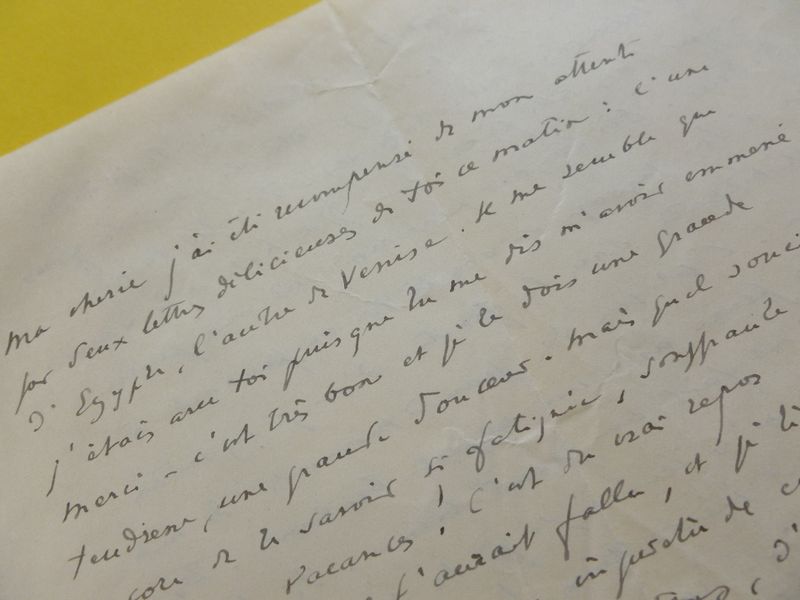 Ma cherie j'ai été recompensé de mon attente
par deux lettres délicieuses de toi ce matin : l'une
d'Egypte, l'autre de Venise. Il me semble que
j'étais avec toi puisque tu me dis m'avoir emmené
merci - c'est très bon et je te dois une grande
tendresse, une grande douceur. Mais quel souci
de te savoir si fatiguée, souffrante
vacances ! C'est du vrai repos
t'aurait fallu, et je
inquiète de